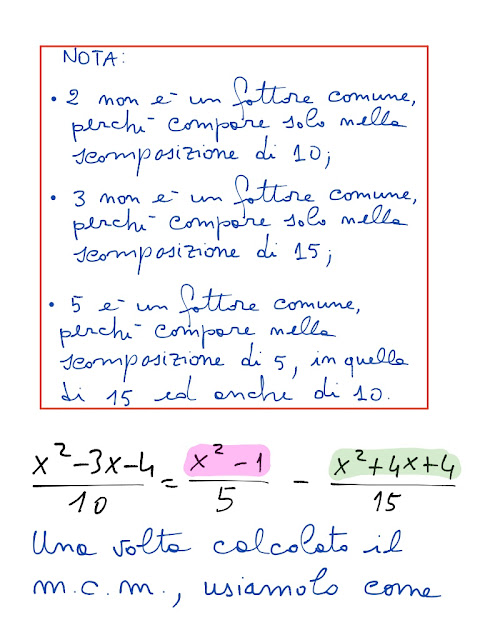 NOTA:
• 2 non è un fattore comune,
perché compare solo nella
scomposizione di 10;
• 3 non è un fattore comune,
perché compare solo nella
scomposizione di 15;
• 5 è un fattore comune,
perché compare nella
scomposizione di 5, in quella
di 15 ed anche di 10.
(x²-3x-4)/10 = (x²-1)/5 - (x²+4x+4)/15
Una volta calcolato il
m.c.m., usiamolo come